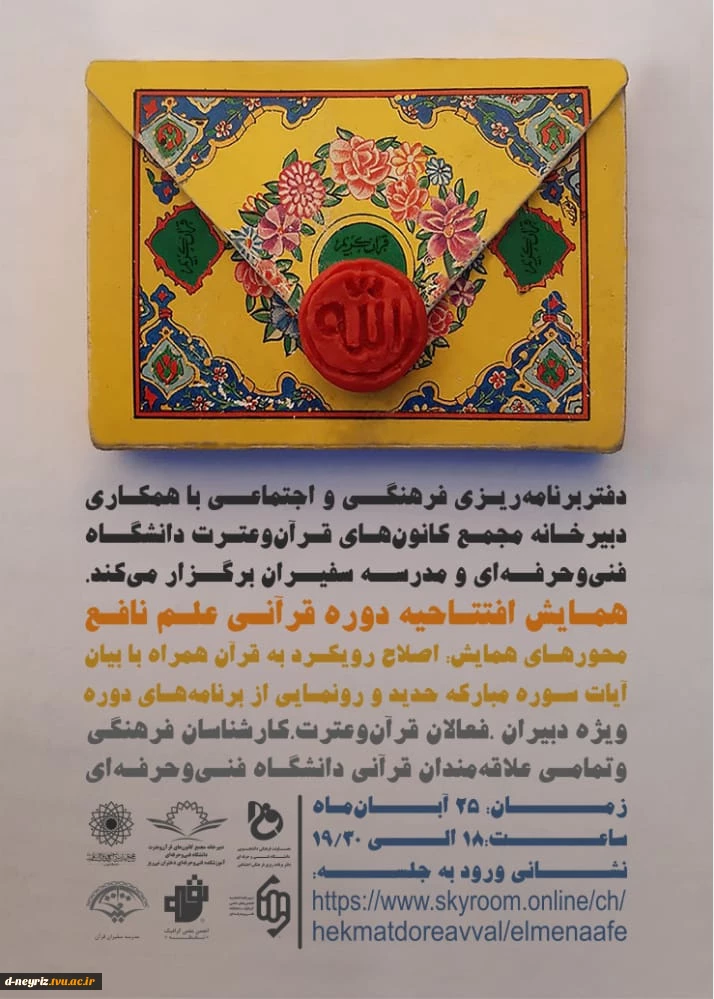 قرآن کریم
قرآن کریم
قرآن کریم
الله
دفتر برنامه‌ریزی فرهنگی و اجتماعی با همکاری
دبیرخانه مجمع کانون‌های قرآن‌وعترت دانشگاه
فنی‌وحرفه‌ای و مدرسه سفیران برگزار می‌کند.
همایش افتتاحیه دوره قرآنی علم نافع
محورهای همایش: اصلاح رویکرد به قرآن همراه با بیان
آیات سوره مبارکه حدید و رونمایی از برنامه‌های دوره
ویژه دبیران ،فعالان قرآن‌وعترت،کارشناسان فرهنگی
وتمامی علاقه‌مندان قرآنی دانشگاه فنی‌وحرفه‌ای
زمان: ۲۵ آبان‌ماه
ساعت:۱۸ الی ۱۹/۳۰
نشانی ورود به جلسه:
https://www.skyroom.online/ch/
hekmatdoreavval/elmenaafe
معاونت فرهنگی دانشجویی
دانشگاه فنی و حرفه ای
دفتر برنامه ریزی فرهنگی اجتماعی
دبیرخانه مجمع کانون‌های قرآن‌وعترت
دانشگاه فنی‌وحرفه‌ای
آموزشکده فنی‌وحرفه‌ای دختران نی‌ریز
انجمن علمی گرافیک
نقطه
مدرسه سفیران قرآن
d-neyriz.tvu.ac.ir